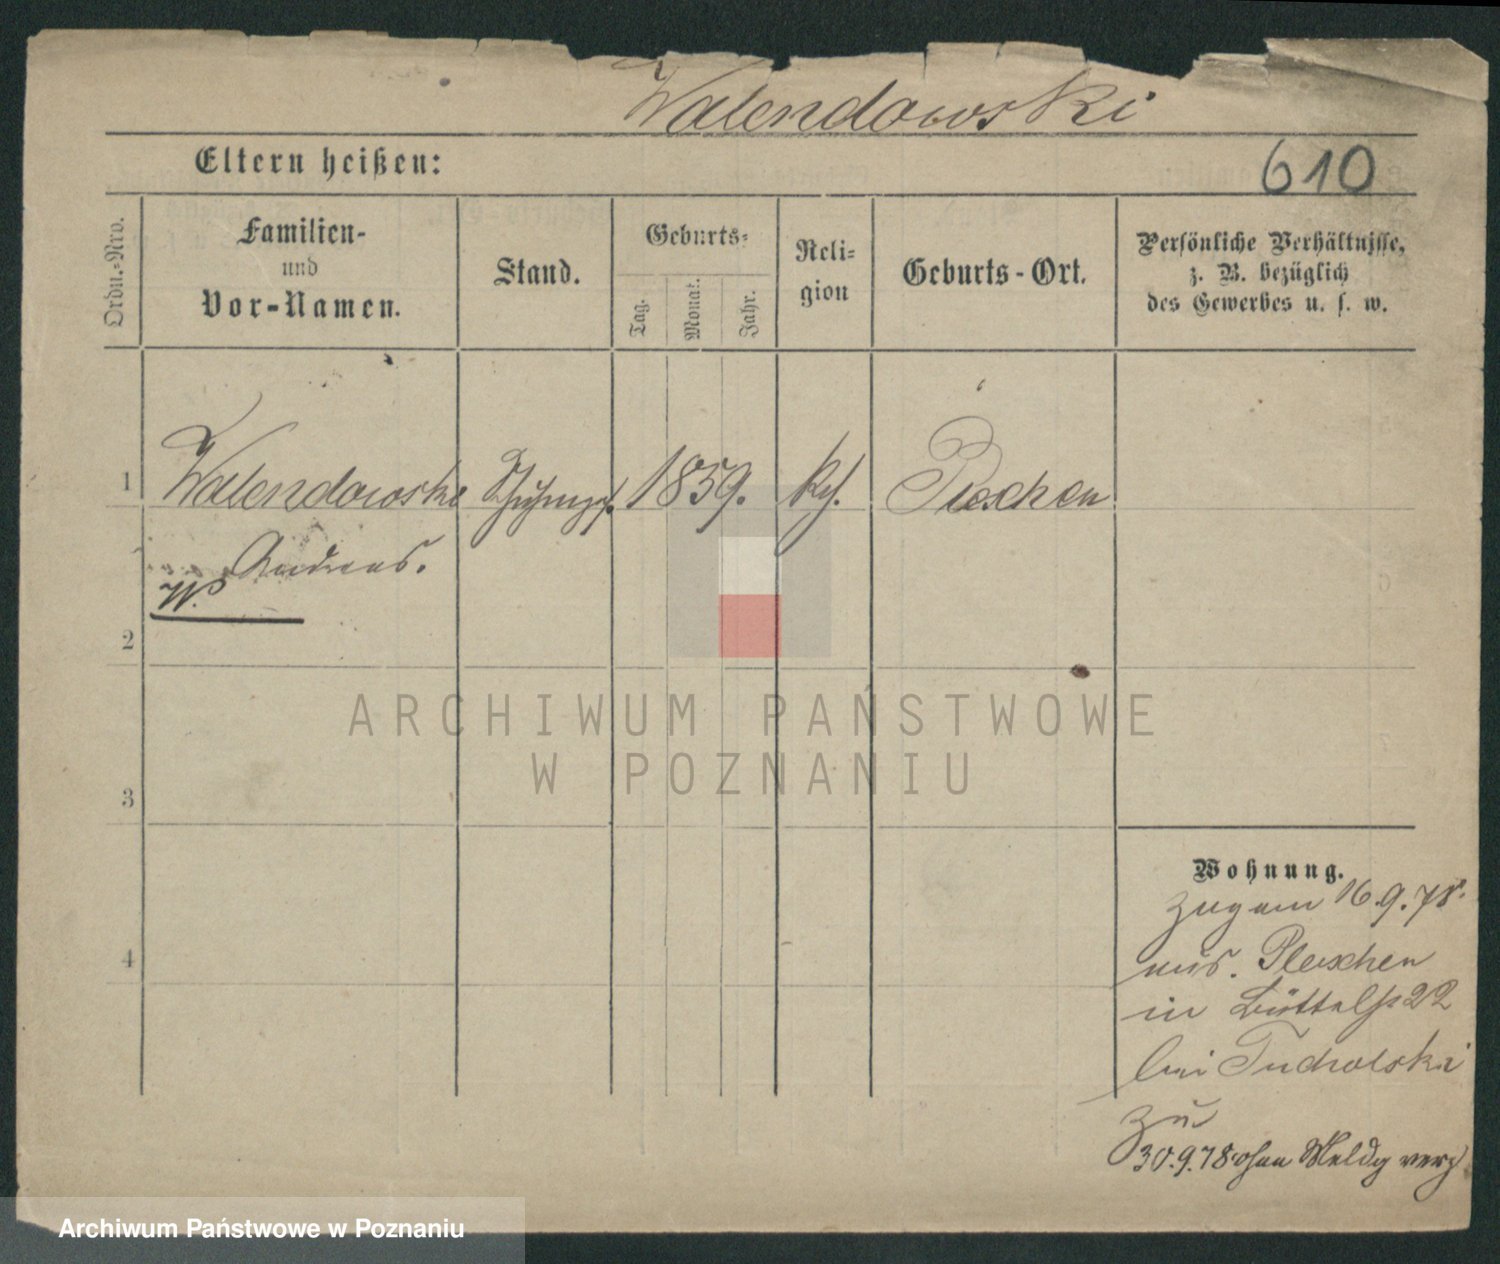 Walendowski
Eltern heißen:
610
Ordn.-Nro.
Familien-
und
Vor-Namen.
Stand.
Geburts-
Tag.
Monat.
Jahr.
Reli-
gion
Geburts-Ort.
Persönliche Verhältnisse,
z. B. bezüglich
des Gewerbes u. s. w.
1
Walendowski
1859.
kth.
Pleschen
Andreas.
W.
2
ARCHIWUM PAŃSTWOWE
W POZNANIU
3
Wohnung.
zug am 16.9.78.
aus. Pleschen
4
in Büttelst 22
bei Tucholski
zu
30.9.78 ohne Meldg verz
Archiwum Państwowe w Poznaniu